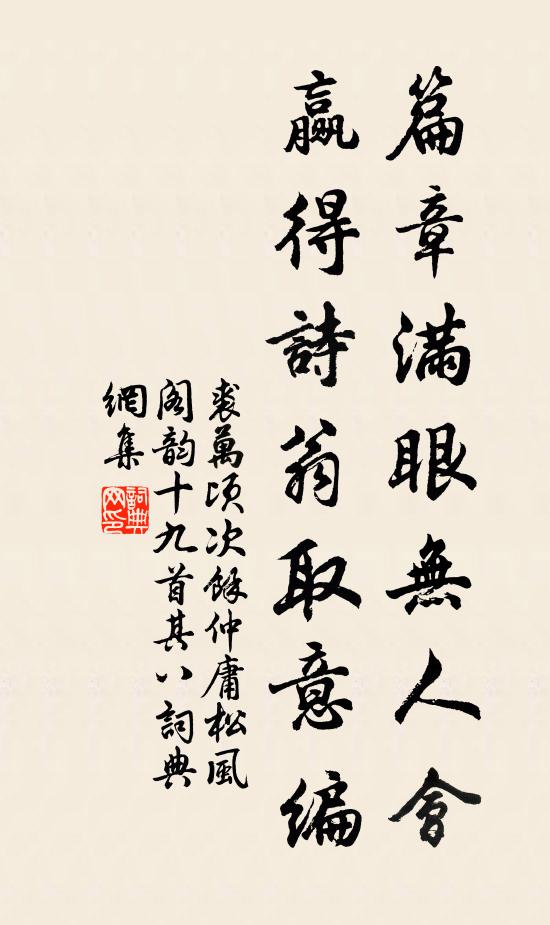 篇章滿眼無人會
贏得詩翁取意編
裘萬頃次餘仲庸松風
阁韵十九首其八詞典
網集
詞典
网印